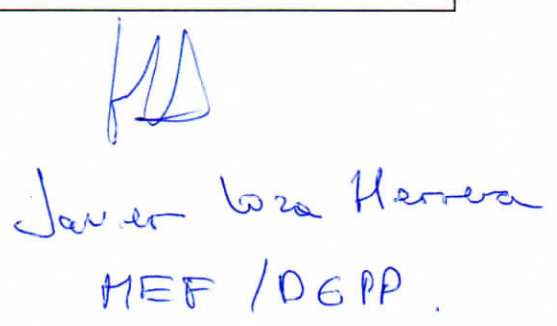 Javier Loza Herrera
MEF / DGPP.